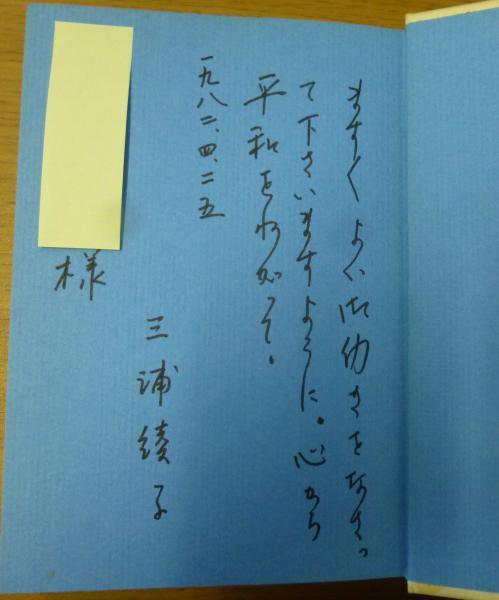 ますますよい御働きをなさっ
て下さいますように。心から
平和を祈って。
一九八二、四、二五
三浦綾子
様